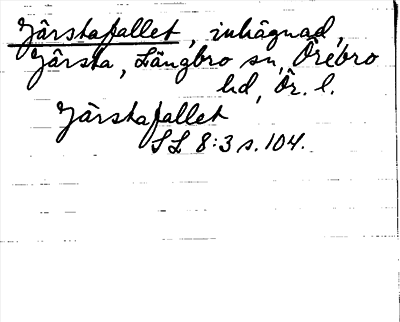 Järstafallet, inhägnad,
Järsta, Längbro sn, Örebro
hd, Ör. l.
Järstafallet
SL 8:3 s. 104.